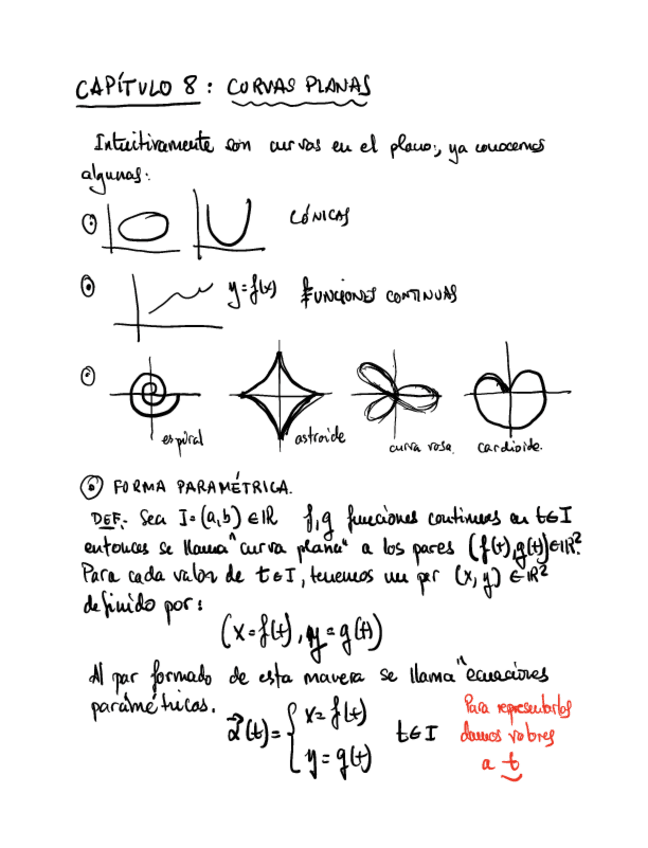 CAPÍTULO 8: CURVAS PLANAS
Intuitivamente son curvas en el plano, ya conocemos
algunas:
CÓNICAS
y=f(x) FUNCIONES CONTINUAS
espiral astroide curva rosa. cardioide.
FORMA PARAMÉTRICA.
DEF: Sea I=(a,b) ∈ IR f,g funciones continuas en t∈I
entonces se llama "curva plana" a los pares (f(t),g(t))∈IR².
Para cada valor de t∈I, tenemos un par (x,y) ∈ IR²
definido por:
(x=f(t), y=g(t))
Al par formado de esta manera se llama "ecuaciones
paramétricas.
α⃗(t)= { x=f(t) y=g(t) t∈I
Para representarlos
damos valores
a t